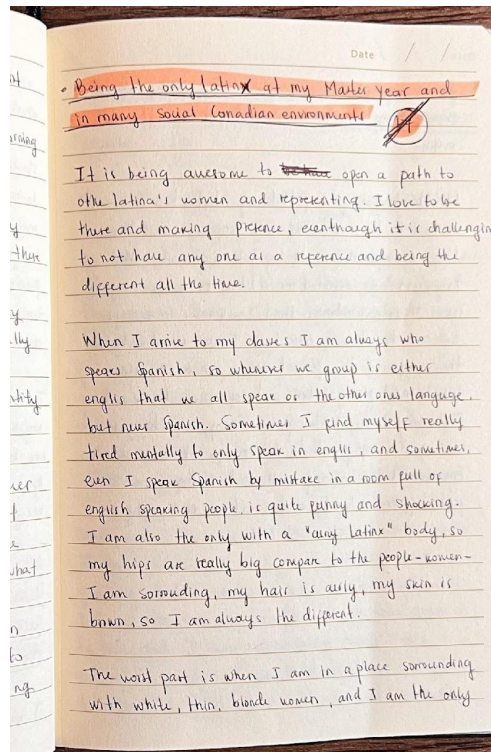 Date / /
• Being the only latinx at my Master year and
in many social Canadian environments
It is being awesome to open a path to
othe latina's women and representing. I love to be
there and making presence, eventhough it is challengin
to not have any one as a reference and being the
different all the time.
When I arrive to my classes I am always who
speaks Spanish, so whenever we group is either
englis that we all speak or the other ones language,
but never Spanish. Sometimes I find myself really
tired mentally to only speak in englis, and sometimes,
even I speak Spanish by mistake in a room full of
english speaking people, is quite funny and shocking.
I am also the only with a "curvy Latinx" body, so
my hips are really big compare to the people-women-
I am sorrouding, my hair is curly, my skin is
brown, so I am always the different.
The worst part is when I am in a place sorrounding
with white, thin, blonde women, and I am the only